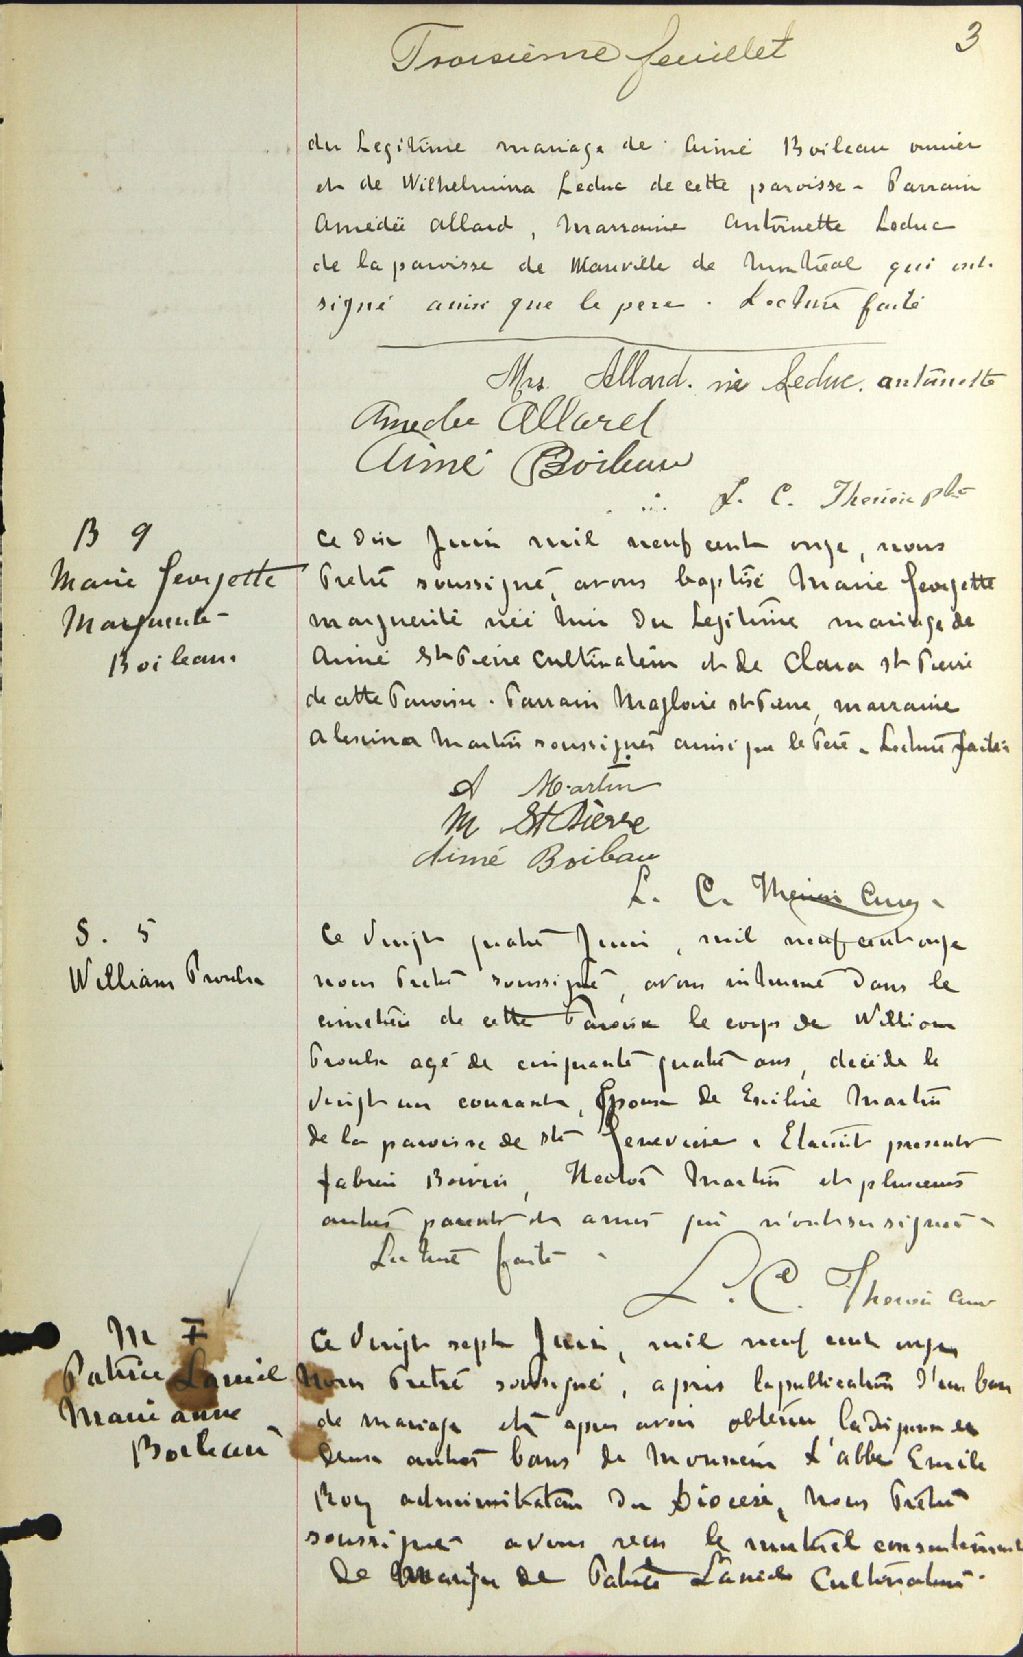 Troisième feuillet
3
du Legitime mariage de Aimé Boileau ouvrier
et de Wilhelmina Leduc de cette paroisse - Parrain
Amédée Allard, Marraine Antoinette Leduc
de la paroisse de de Montreal qui ont
signé ainsi que le pere. Lecture faite
Mrs. Allard. née Leduc. antoinette
Amedee Allard
Aimé Boileau
L. C. Therien ptre
B 9
Marie Georgette
Marguerite
Boileau
Ce dix Juin mil neuf cent onze, nous
Pretre soussigné, avons baptisé Marie Georgette
marguerite née hier du Legitime mariage de
Aimé St Pierre Cultivateur et de Clara St Pierre
de cette Paroisse. Parrain Magloire St Pierre, marraine
Alexina Martin soussignés ainsi que le Père - Lecture faite
A Martin
M St Pierre
Aimé Boileau
L. C. Therien Curé
S. 5
William Proulx
Ce vingt quatre Juin, mil neuf cent onze
nous Pretre soussigné, avons inhumé dans le
cimetière de cette Paroisse le corps de William
Proulx agé de cinquante quatre ans, décédé le
vingt un courant, Epoux de Emilie Martin
de la paroisse de Ste Genevieve. Etaient presents
Fabien Boivin, Hector Martin et plusieurs
autres parents et amis qui n'ont su signer -
Lecture faite -
L. C. Therien Curé
M I
Patrice Lancil
Marie anne
Boileau
Ce vingt sept Juin, mil neuf cent onze
Nous Pretre soussigné, apres la publication d'un ban
de mariage et apres avoir obtenu la dispense de
deux autres bans de Monsieur L'abbé Emile
Roy administrateur du Diocese, Nous Prêtre
soussigné avons recu le mutuel consentement
de Mariage de Patrice Cultivateur